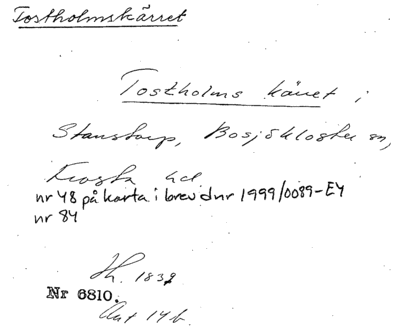 Tostholmskärret
Tostholms kärret i
Stanstorp, Bosjökloster sn,
Frosta hd
nr 48 på karta i brev dnr 1999/0089-EY
nr 84
Sk. 183
Nr 6810.
Akt 14 b.